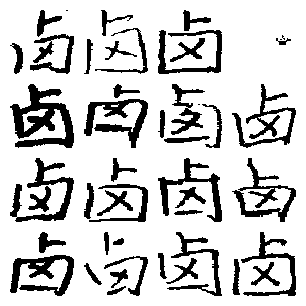 卤卤卤
卤卤卤卤
卤卤卤卤
卤卤卤卤